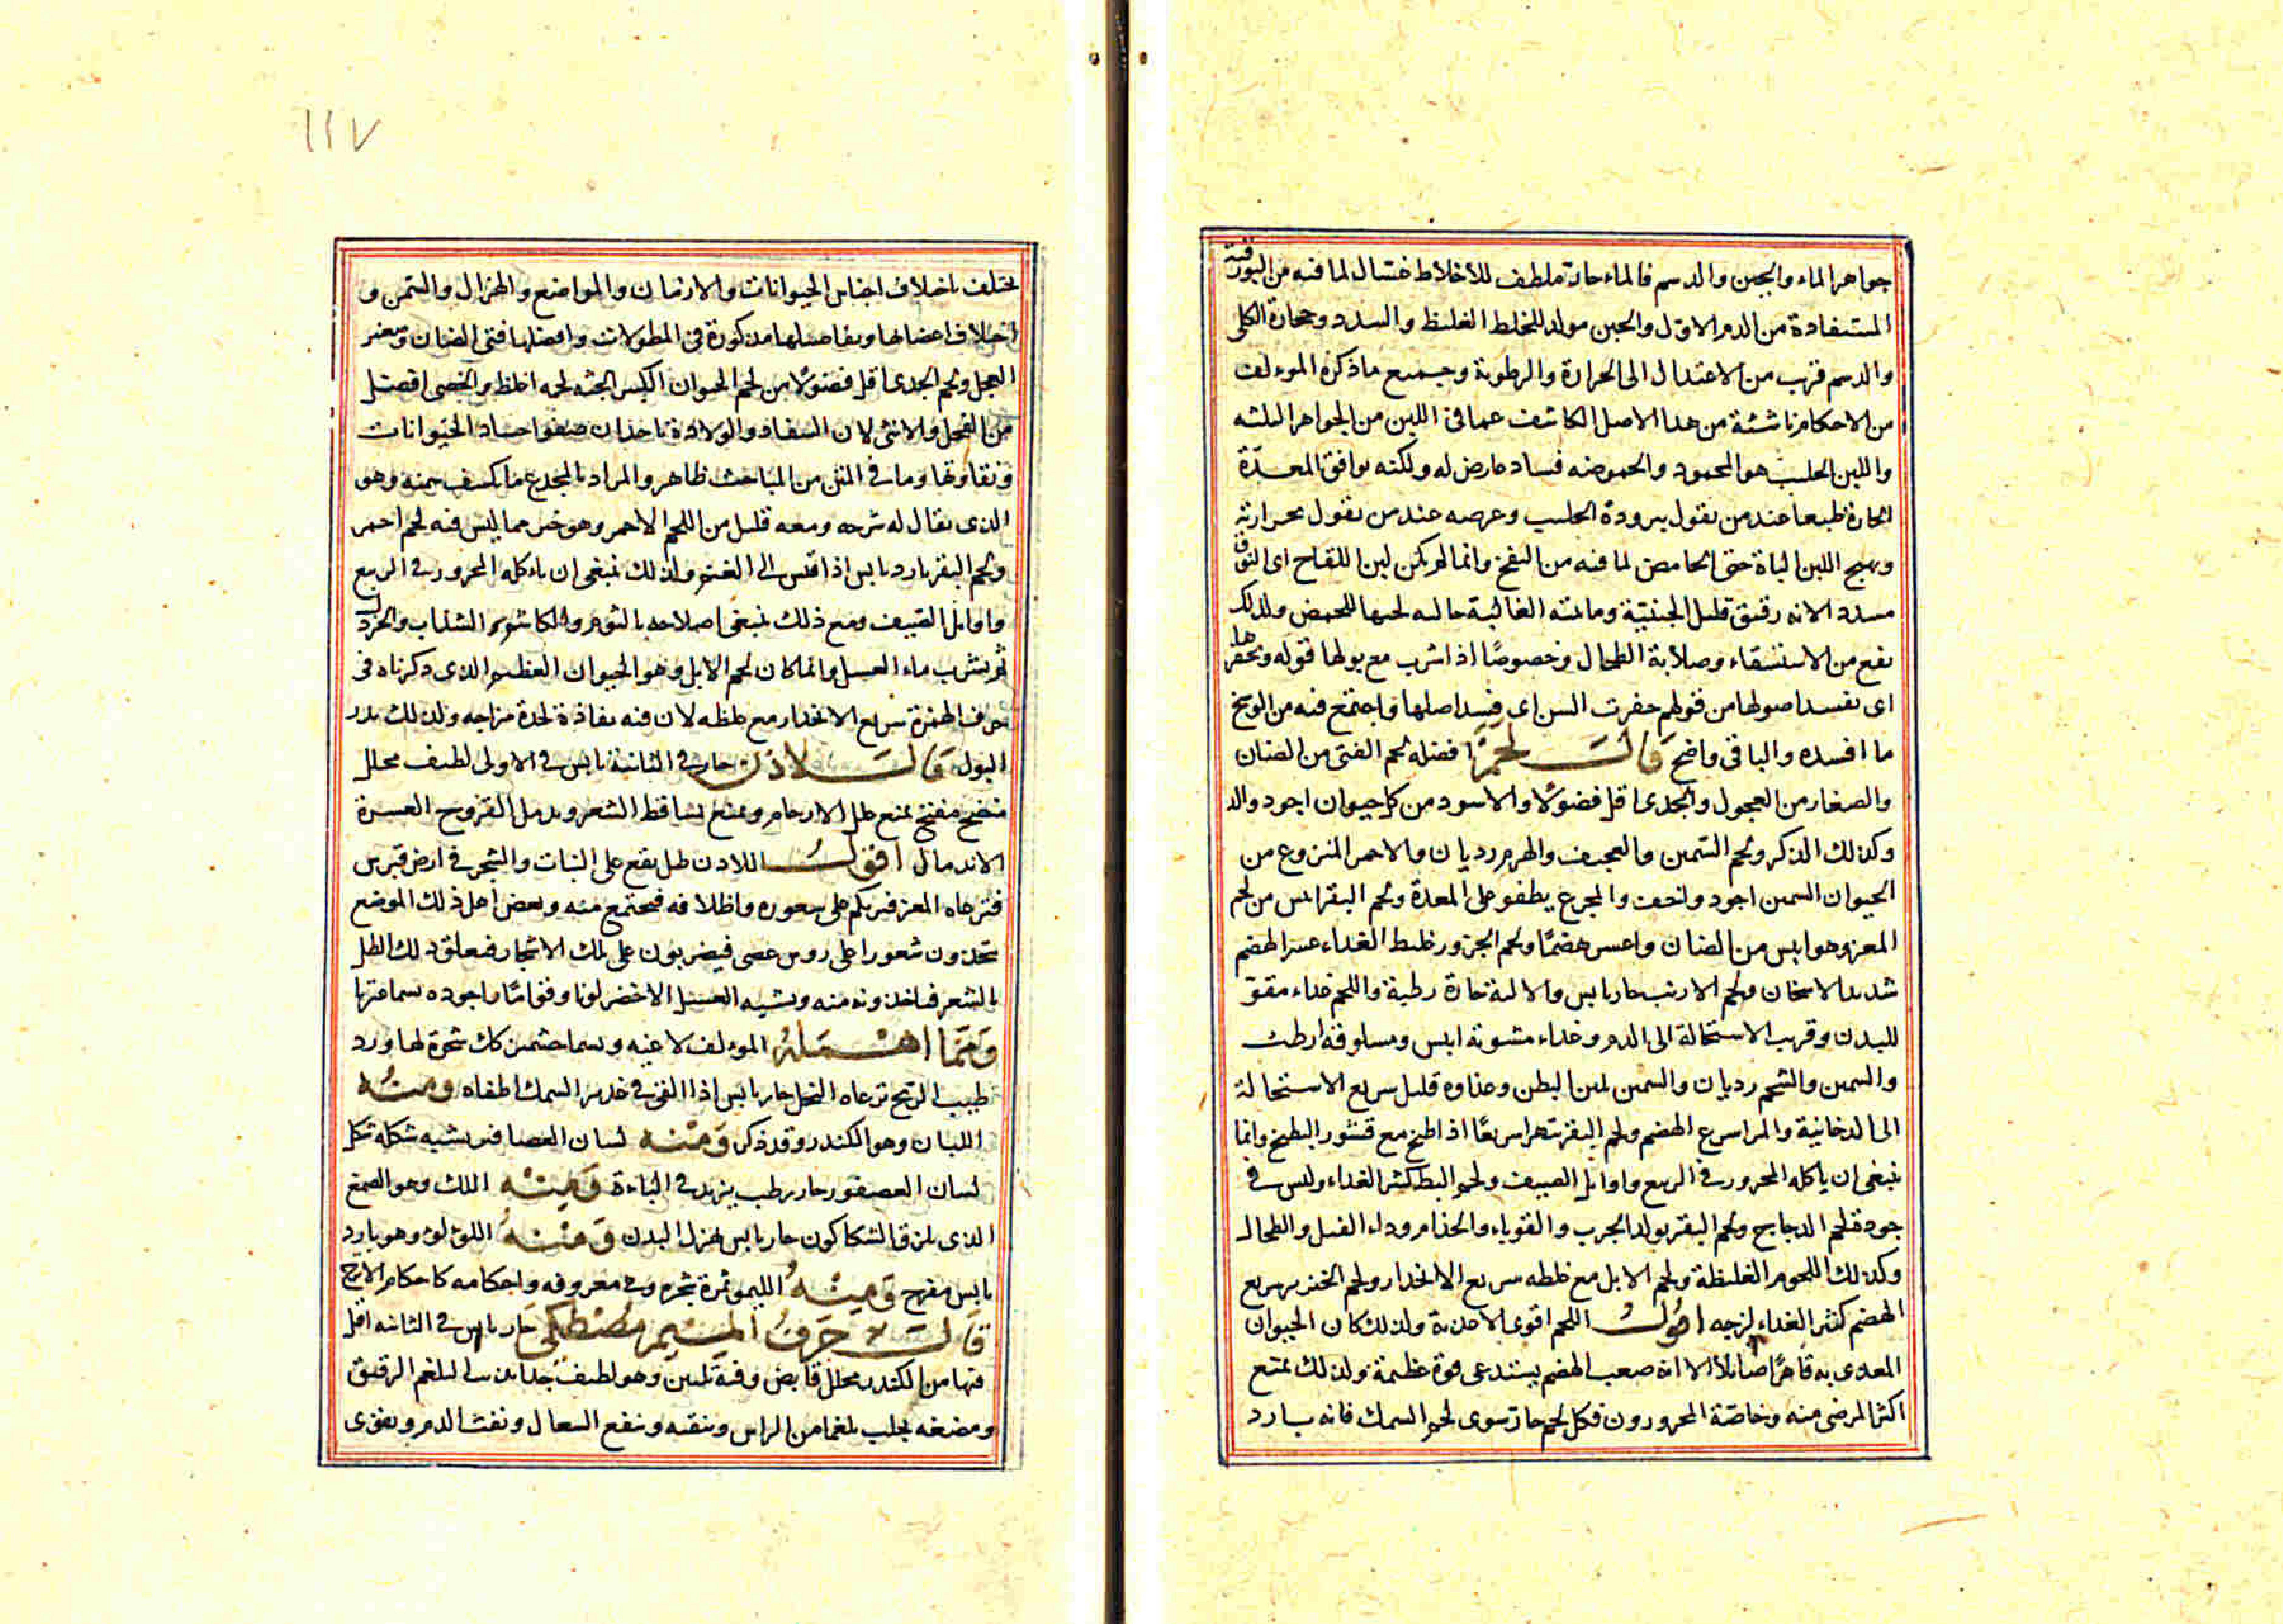 جواهر الماء والجبن والدسم فالماء حار ملطف للاخلاط غسال لما فيه من البورقية
المستفادة من الدم الاول والجبن مولد للخلط الغليظ والسدد وحجارة الكلى
والدسم قريب من الاعتدال الى الحرارة والرطوبة وجميع ما ذكره المولف
من الاحكام ناشئة من هذا الاصل الكاشف عما فى اللبن من الجواهر الثلثه
واللبن الحليب هو المحمود والحموضه فساد عارض له ولكنه يوافق المعدة
الحارة طبعا عند من يقول ببرودة الحليب وعرضه عند من يقول بحرارته
ويهيج اللبن الباة حتى الحامض لما فيه من النفخ وانما لم يكن لبن اللقاح اى النوق
مسددا لانه رقيق قليل الجبنية ومائيته الغالبة جالبه لحبها للحمض ولذلك
ينفع من الاستسقاء وصلابة الطحال وخصوصًا اذا شرب مع بولها قوله ويحفرها
اى يفسد اصولها من قولهم حفرت السن اى فسد اصلها واجتمع فيه من الوسخ
ما افسده والباقى واضح قال لحمٌ افضله لحم الفتى من الضان
والصغار من العجول والجدى اقل فضولًا والاسود من كل حيوان اجود والذ
وكذلك الذكر ولحم السمين والعجيف والهرم رديان والاحمر المنزوع من
الحيوان السمين اجود واخف والمجزع يطفو على المعدة ولحم البقر ايبس من لحم
المعز وهو ايبس من الضان واعسر هضمًا ولحم الجزور غليظ الغداء عسر الهضم
شديد الاسخان ولحم الارنب حار يابس والالية حارة رطبة واللحم غداء مقو
للبدن وقريب الاستحالة الى الدم وغداء مشويه ايبس ومسلوقه ارطب
والسمين والشحم رديان والسمين يلين البطن وغذاوه قليل سريع الاستحالة
الى الدخانية والمرار سريع الهضم ولحم البقر يتهرا سريعًا اذا طبخ مع قشور البطيخ وانما
ينبغى ان ياكله المحرور فى الربيع واوايل الصيف ولحم البط كثير الغداء وليس فى
جودة لحم الدجاج ولحم البقر يولد الجرب والقوباء والجذام وداء الفيل والطحال
وكذلك اللحوم الغليظة ولحم الابل مع غلظه سريع الانحدار ولحم الخنزير سريع
الهضم كثير الغداء لزجه اقول اللحم اقوى الاغذية ولذلك كان الحيوان
المغدى به قاهرًا صائلا الا انه صعب الهضم يستدعى قوة عظيمة ولذلك يمنع
اكثر المرضى منه وخاصّة المحرورون فكل لحم حار سوى لحم السمك فانه بارد
١١٧
يختلف باختلاف اجناس الحيوانات والارسان والمواضع والهزال والسمن و
اختلاف اعضائها وتفاصيلها مذكورة فى المطولات وافضلها فتى الضان وصغير
العجل ولحم الجدى اقل فضولًا من لحم الحيوان الكبير الجثه لحمه اغلظ والخصى افضل
من الفحل والانثى لان السفاد والولادة ياخذان صفو اجساد الحيوانات
ونقاوتها وما فى المتن من المباحث ظاهر والمراد بالمجدع ما يكسف سمنه وهو
الذى يقال له شرحه ومعه قليل من اللحم الاحمر وهو خير مما ليس فيه لحم احمر
ولحم البقر بارد يابس اذا قيس الى الغنم ولذلك ينبغى ان ياءكله المحرور فى الربيع
واوايل الصيف ومع ذلك ينبغى اصلاحه بالثوم والكاشم والسداب والخردل
ثم يشرب ماء العسل وانما كان لحم الابل وهو الحيوان العظيم الذى ذكرناه فى
حرف الهمزة سريع الانحدار مع غلظه لان فيه نفاذة لحدة مزاجه ولذلك يدر
البول قال لاذن حار فى الثانية يابس فى الاولى لطيف محلل
منضج مفتح يمنع علل الارحام ويمنع تساقط الشعر ويدمل القروح العسرة
الاندمال اقول اللادن طل يقع على النبات والشجر فى ارض قبرس
فترعاه المعز فيرتكم على شعوره واظلافه فيجتمع منه وبعض اهل ذلك الموضع
يتخذون شعورا على روس عصى فيضربون على تلك الاشجار فيعلق ذلك الطل
بالشعر فياخذونه منه ويشبه العسل الاخضر لونا وقوامًا واجوده
وَمما اهمله المولف لاغيه وسما حثمن كك شجرة لها ورد
طيب الريح ترعاه النحل حار يابس اذا القى فى غدير السمك اطفاه ومنه
اللبان وهو الكندر وقد ذكر ومنه لسان العصافير يشبه شكله شكل
لسان العصفور حار رطب يزيد فى الباءة ومنه اللك وهو الصمغ
الذى يلزق السكاكون حار يابس يهزل البدن ومنه اللؤلؤ وهو بارد
يابس مفرح ومنه الليمو ثمرة شجره وهى معروفه واحكامه كاحكام الاترج
قال حرف الميم مصطكى حار يابس فى الثانيه اقل
فيها من الكندر محلل قابض وفيه تليين وهو لطيف جدا يذيب البلغم الرقيق
ومضغه يجلب بلغما من الراس وينقيه وينفع السعال ونفث الدم ويقوى